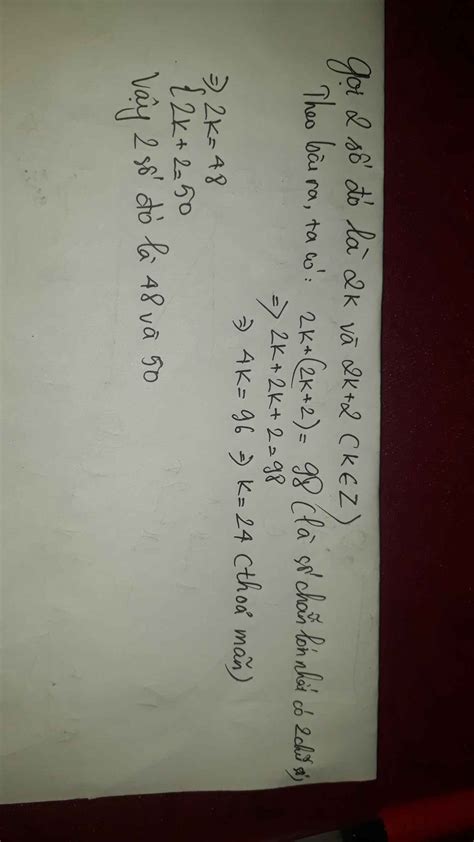 Gọi 2 số đó là 2k và 2k+2 (k∈Z)
Theo bài ra, ta có: 2k+(2k+2)= 98 (là số chẵn lớn nhất có 2 chữ số)
=> 2k+2k+2=98
=> 4k=96 => k=24 (thoả mãn)
=> { 2k=48
2k+2=50
Vậy 2 số đó là 48 và 50